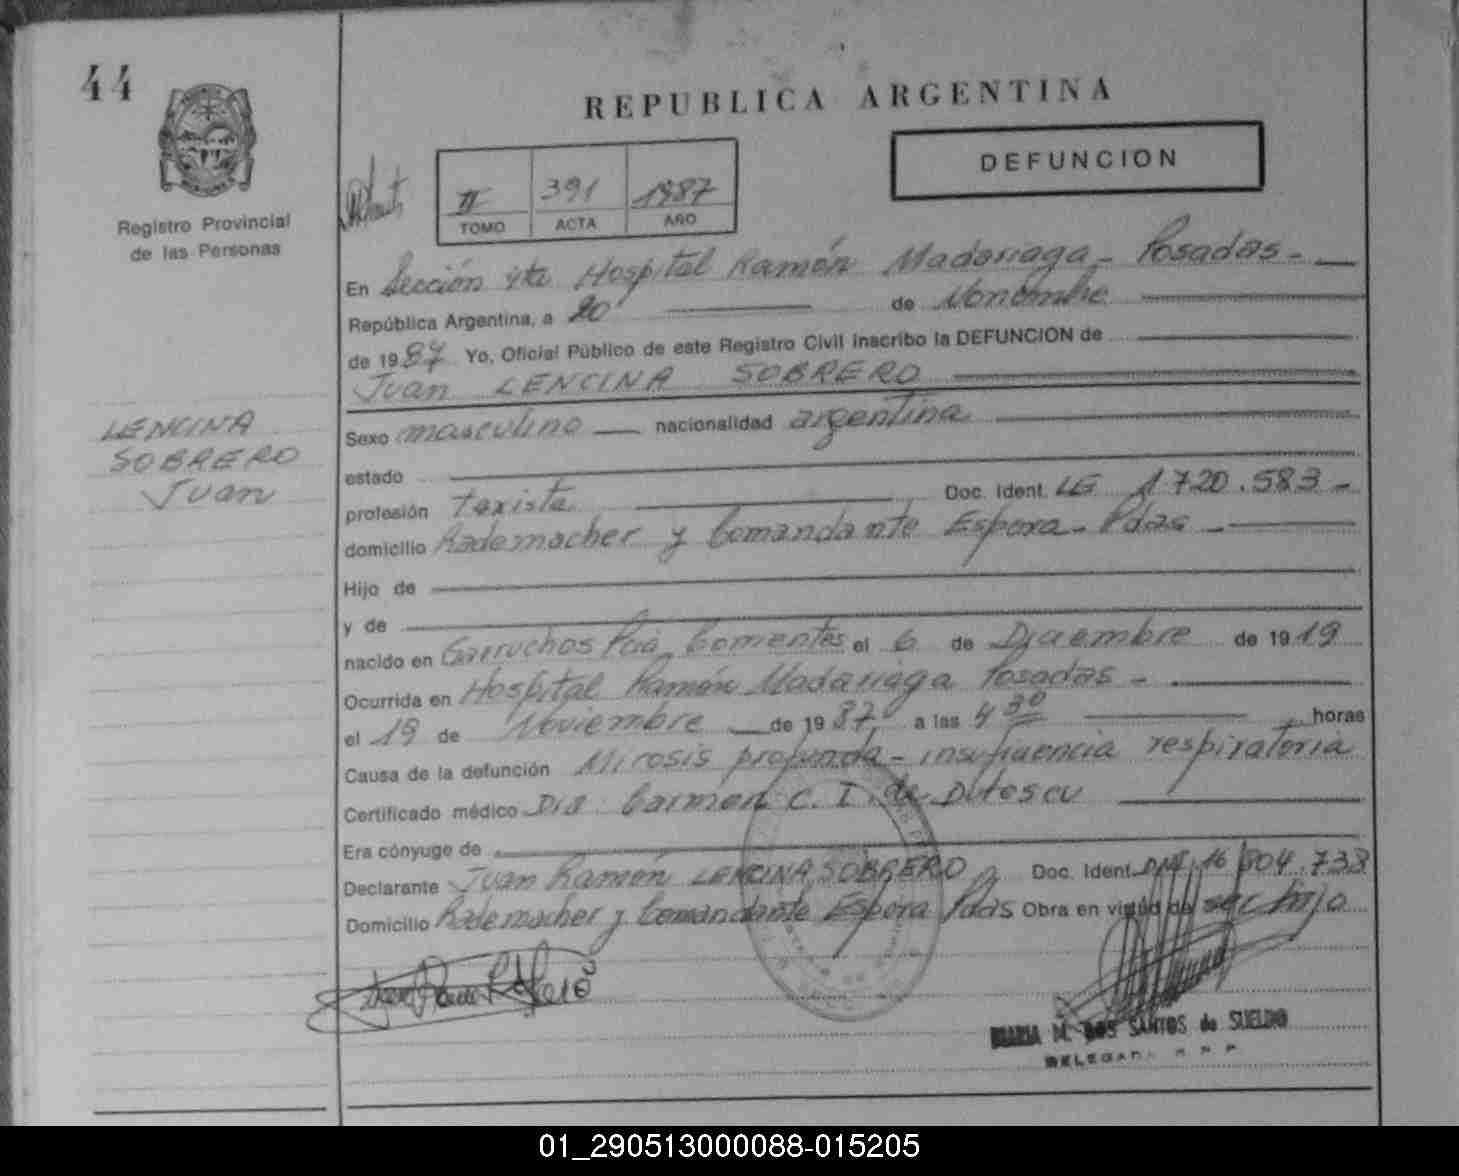 44
REPUBLICA ARGENTINA
DEFUNCION
II 391 1987
TOMO ACTA AÑO
Registro Provincial
de las Personas
En Sección 4ta Hospital Ramón Madariaga - Posadas -
República Argentina, a 20 de Noviembre
de 1987 Yo, Oficial Público de este Registro Civil inscribo la DEFUNCION de
Juan LENCINA SOBRERO
LENCINA
SOBRERO
Juan
Sexo masculino nacionalidad argentina
estado
profesión taxista Doc. Ident. LE 1720.583 -
domicilio Rademacher y Comandante Espora - Pdas -
Hijo de
y de
nacido en Garruchos Pcia Corrientes el 6 de Diciembre de 1919
Ocurrida en Hospital Ramón Madariaga Posadas -
el 19 de Noviembre de 1987 a las 4 30 horas
Causa de la defunción profunda - insuficiencia respiratoria
Certificado médico Dra. Carmen C. I. de
Era cónyuge de
Declarante Juan Ramón LENCINA SOBRERO Doc. Ident. DNI 16 804.738
Domicilio Rademacher y Comandante Espora Pdas Obra en virtud de ser hijo
MARIA M. DOS SANTOS de SUELDO
DELEGADA R P P
01_290513000088-015205